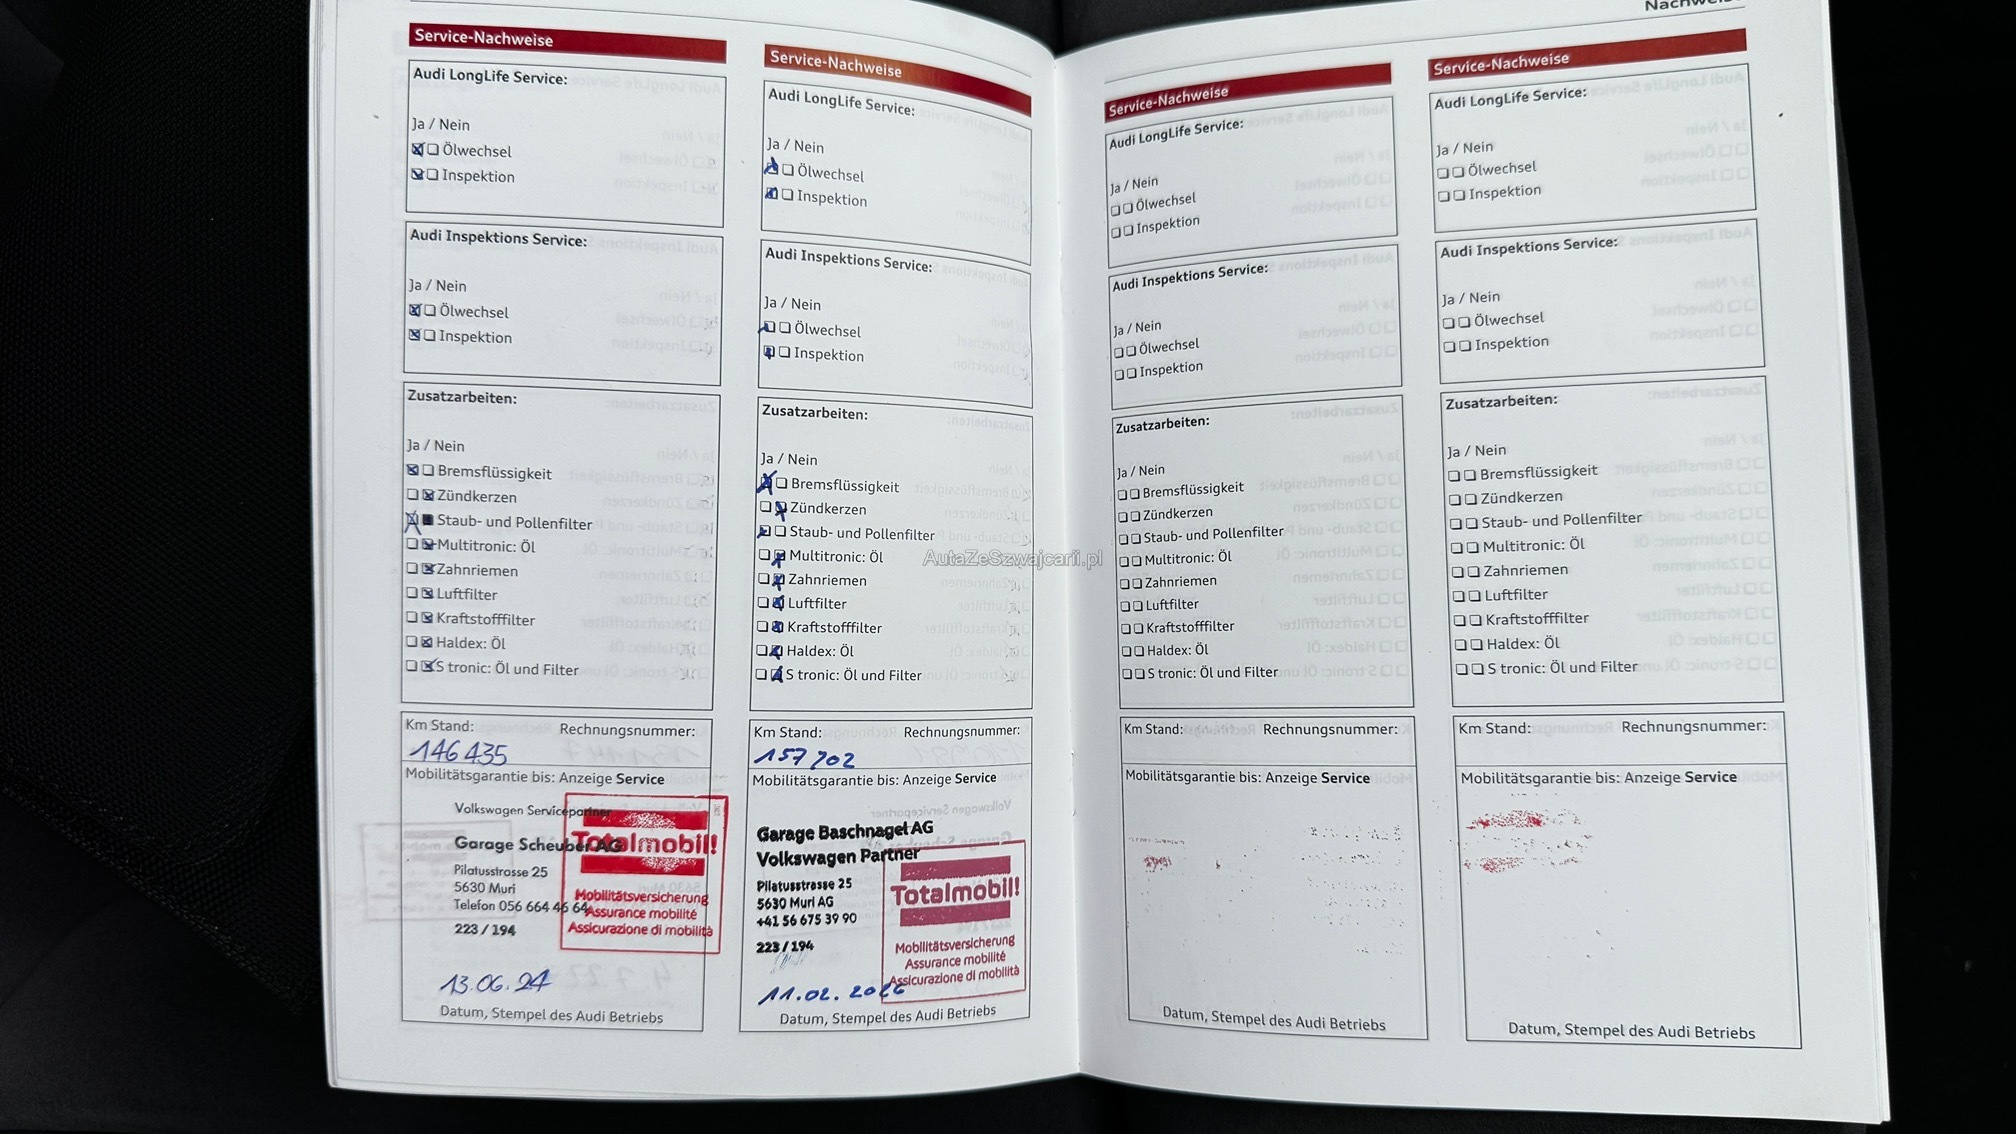 Service-Nachweise
Audi LongLife Service:
Ja / Nein
Ölwechsel
Inspektion
Audi Inspektions Service:
Ja / Nein
Ölwechsel
Inspektion
Zusatzarbeiten:
Ja / Nein
Bremsflüssigkeit
Zündkerzen
Staub- und Pollenfilter
Multitronic: Öl
Zahnriemen
Luftfilter
Kraftstofffilter
Haldex: Öl
S tronic: Öl und Filter
Km Stand: Rechnungsnummer:
146 435
Mobilitätsgarantie bis: Anzeige Service
Volkswagen Servicepartner
Garage Scheuber AG
Pilatusstrasse 25
5630 Muri
Telefon 056 664 46 64
223 / 194
Totalmobil!
Mobilitätsversicherung
Assurance mobilité
Assicurazione di mobilità
13.06.24
Datum, Stempel des Audi Betriebs
Service-Nachweise
Audi LongLife Service:
Ja / Nein
Ölwechsel
Inspektion
Audi Inspektions Service:
Ja / Nein
Ölwechsel
Inspektion
Zusatzarbeiten:
Ja / Nein
Bremsflüssigkeit
Zündkerzen
Staub- und Pollenfilter
Multitronic: Öl
Zahnriemen
Luftfilter
Kraftstofffilter
Haldex: Öl
S tronic: Öl und Filter
Km Stand: Rechnungsnummer:
157 702
Mobilitätsgarantie bis: Anzeige Service
Garage Baschnagel AG
Volkswagen Partner
Pilatusstrasse 25
5630 Muri AG
+41 56 675 39 90
223 / 194
Totalmobil!
Mobilitätsversicherung
Assurance mobilité
Assicurazione di mobilità
11.02.
Datum, Stempel des Audi Betriebs
AutaZeSzwajcarii.pl
Service-Nachweise
Audi LongLife Service:
Ja / Nein
Ölwechsel
Inspektion
Audi Inspektions Service:
Ja / Nein
Ölwechsel
Inspektion
Zusatzarbeiten:
Ja / Nein
Bremsflüssigkeit
Zündkerzen
Staub- und Pollenfilter
Multitronic: Öl
Zahnriemen
Luftfilter
Kraftstofffilter
Haldex: Öl
S tronic: Öl und Filter
Km Stand: Rechnungsnummer:
Mobilitätsgarantie bis: Anzeige Service
Datum, Stempel des Audi Betriebs
Service-Nachweise
Audi LongLife Service:
Ja / Nein
Ölwechsel
Inspektion
Audi Inspektions Service:
Ja / Nein
Ölwechsel
Inspektion
Zusatzarbeiten:
Ja / Nein
Bremsflüssigkeit
Zündkerzen
Staub- und Pollenfilter
Multitronic: Öl
Zahnriemen
Luftfilter
Kraftstofffilter
Haldex: Öl
S tronic: Öl und Filter
Km Stand: Rechnungsnummer:
Mobilitätsgarantie bis: Anzeige Service
Datum, Stempel des Audi Betriebs